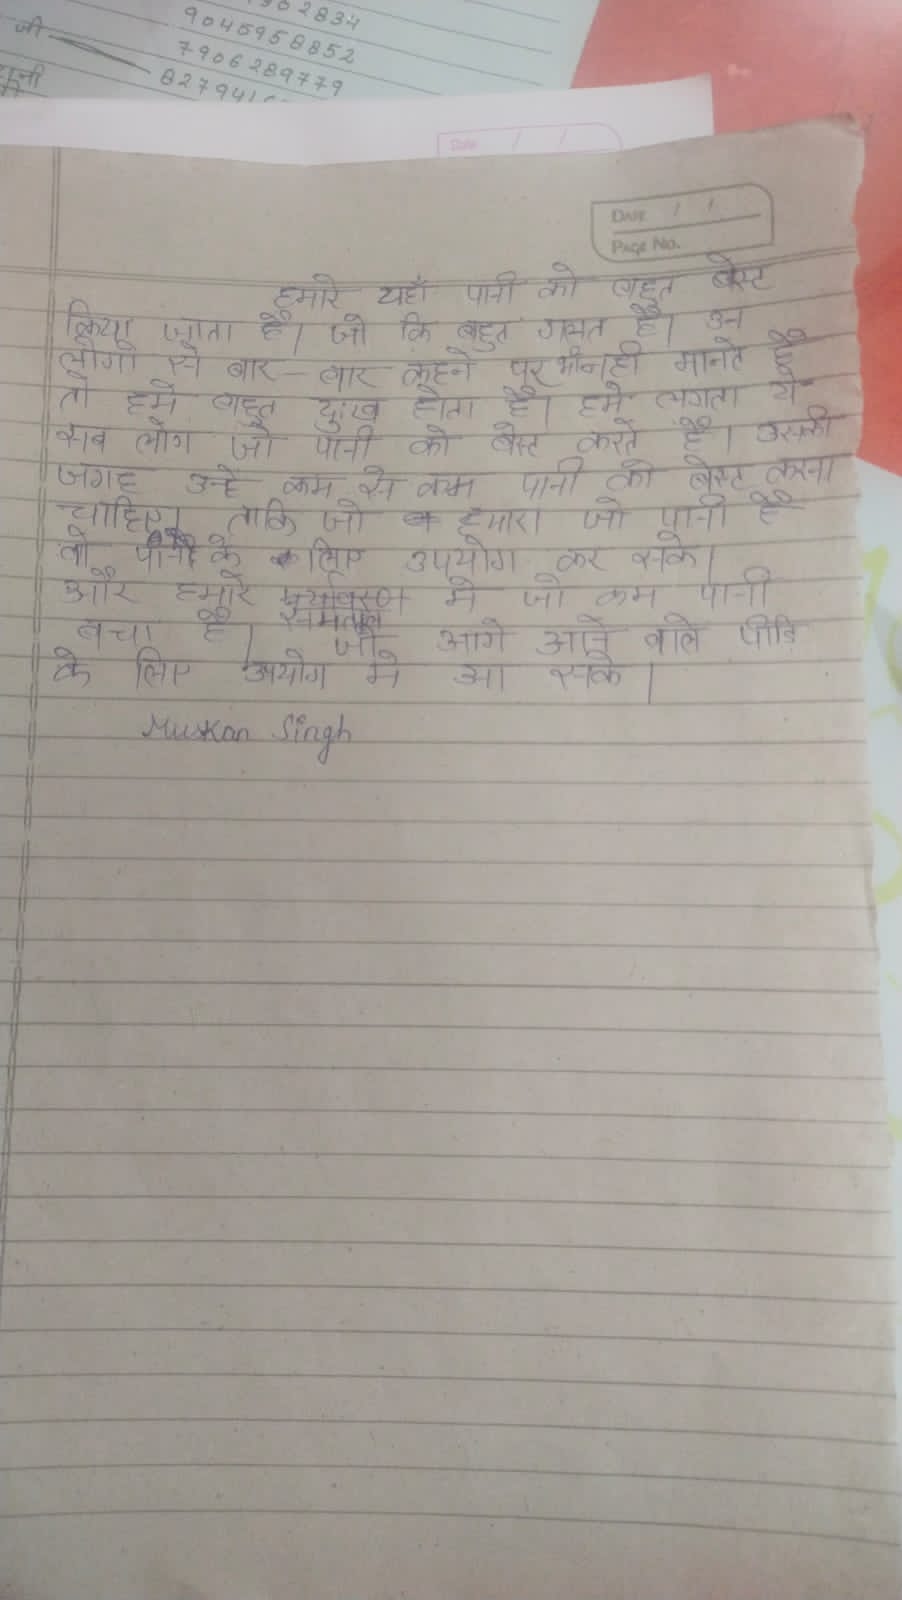 9045958852
7906289779
जी
Date / /
DATE / /
PAGE NO.
हमारे यहाँ पानी को बहुत बेस्ट
किया जाता है। जो कि बहुत गलत है। उन
लोगो से बार-बार कहने पर भी नही मानते है
तो हमे बहुत दुःख होता है। हमे लगता ये
सब लोग जो पानी को बेस्ट करते है। उसकी
जगह उन्हे कम से कम पानी को बेस्ट करना
चाहिए। ताकि जो हमारा जो पानी है
वो पीने के लिए उपयोग कर सके।
और हमारे पर्यावरण मे जो कम पानी
बचा है। जो आगे आने वाले पीढि
के लिए उपयोग मे आ सके।
Muskan Singh